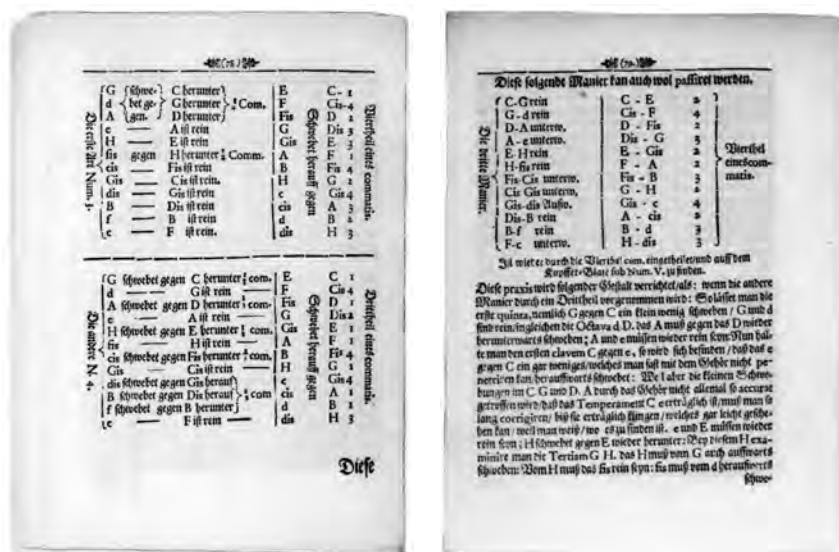 (78.)
Die erste Art Num. 3.
G schwe- C herunter E C - 1
d bet ge- G herunter ¼ Com. F Cis-4
A gen. D herunter Fis D 2
e — A ist rein G Dis 3
H — E ist rein Gis E 3
fis gegen H herunter ¼ Comm. A F 1
cis — Fis ist rein B Fis 4
Gis — Cis ist rein. H G 2
dis — Gis ist rein c Gis 4
B — Dis ist rein cis A 3
f — B ist rein d B 2
c — F ist rein. dis H 3
Schwebet herauff gegen
Viertheil eines commatis.
Die andere N. 4.
G schwebet gegen C herunter ⅓ com. E C 1
d — G ist rein — F Cis 4
A schwebet gegen D herunter ⅓ com. Fis D 1
e — A ist rein — G Dis 2
H schwebet gegen E herunter ⅓ com. Gis E 1
fis — H ist rein — A F 1
cis schwebet gegen Fis herunter ⅓ com. B Fis 4
Gis — Cis ist rein — H G 1
dis schwebet gegen Gis herauf c Gis 4
B schwebet gegen Dis herauf ⅓ com cis A 1
f schwebet gegen B herunter d B 1
c — F ist rein — dis H 3
Schwebet herauff gegen
Drittheil eines commatis.
Diese
(79.)
Diese folgende Manier kan auch wol passiret werden.
Die dritte Manier.
C-G rein C - E 2
G-d rein Cis - F 4
D-A unterw. D - Fis 2
A-e unterw. Dis - G 3
E-H rein E - Gis 2
H-fis rein F - A 2
Fis-Cis unterw. Fis - B 3
Cis Gis unterw. G - H 2
Gis-dis Aufw. Gis - c 4
Dis-B rein A - cis 2
B-f rein B - d 3
F-c unterw. H - dis 3
Vierthel
eines com-
matis.
Ist wieder durch die Vierthel com. eingetheilet/und auff dem
Kupffer-Blate sub Num. V. zu finden.
Diese praxis wird folgender Gestalt verrichtet/als: wenn die andere
Manier durch ein Drittheil vorgenommen wird: So lässet man die
erste quinta, nemlich G gegen C ein klein wenig schweben / G und d
sind rein, ingleichen die Octava d D. das A muß gegen das D wieder
herunterwarts schweben; A und e müssen wieder rein seyn: Nun hal-
te man den ersten clavem C gegen e, so wird sich befinden / daß das e
gegen C ein gar weniges/welches man fast mit dem Gehör nicht pe-
netriren kan herauffwarts schwebet: Weil aber die kleinen Schwe-
bungen im C G und D. A durch das Gehör nicht allemal so accurat
getroffen wird/daß das Temperament C e erträglich ist/muß man so
lang corrigiren / biß sie erträglich klingen / welches gar leicht gesche-
hen kan / weil man weiß/ wo es zu finden ist. e und E müssen wieder
rein seyn; H schwebet gegen E wieder herunter: Bey diesem H exa-
minire man die Tertiam G H. das H muß vom G auch auffwarts
schweben: Vom H muß das fis rein seyn: fis muß vom d herauffwerts
schwe-